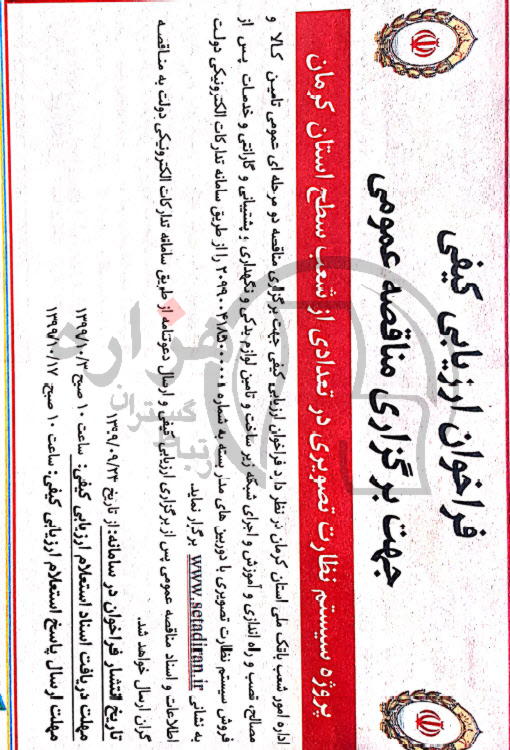 فراخوان ارزیابی کیفی
جهت برگزاری مناقصه عمومی
پروژه سیستم نظارت تصویری در تعدادی از شعب سطح استان کرمان
اداره امور شعب بانک ملی استان کرمان در نظر دارد فراخوان ارزیابی کیفی جهت برگزاری مناقصه دو مرحله ای عمومی تامین کالا و
مصالح، نصب و راه اندازی و آموزش و اجرای شبکه زیر ساخت و تامین لوازم یدکی و نگهداری و پشتیبانی و گارانتی و خدمات پس از
فروش سیستم نظارت تصویری با دوربین های مدار بسته به شماره را از طریق سامانه تدارکات الکترونیکی دولت
به نشانی www.setadiran.ir برگزار نماید.
اطلاعات و اسناد مناقصه عمومی پس از برگزاری ارزیابی کیفی و ارسال دعوتنامه از طریق سامانه تدارکات الکترونیکی دولت به مناقصه
گران ارسال خواهد شد.
تاریخ انتشار فراخوان در سامانه: از تاریخ ۱۳۹۹/۰۹/۲۴
مهلت دریافت اسناد استعلام ارزیابی کیفی: ساعت ۱۰ صبح ۱۳۹۹/۱۰/۳
مهلت ارسال پاسخ استعلام ارزیابی کیفی: ساعت ۱۰ صبح ۱۳۹۹/۱۰/۱۷